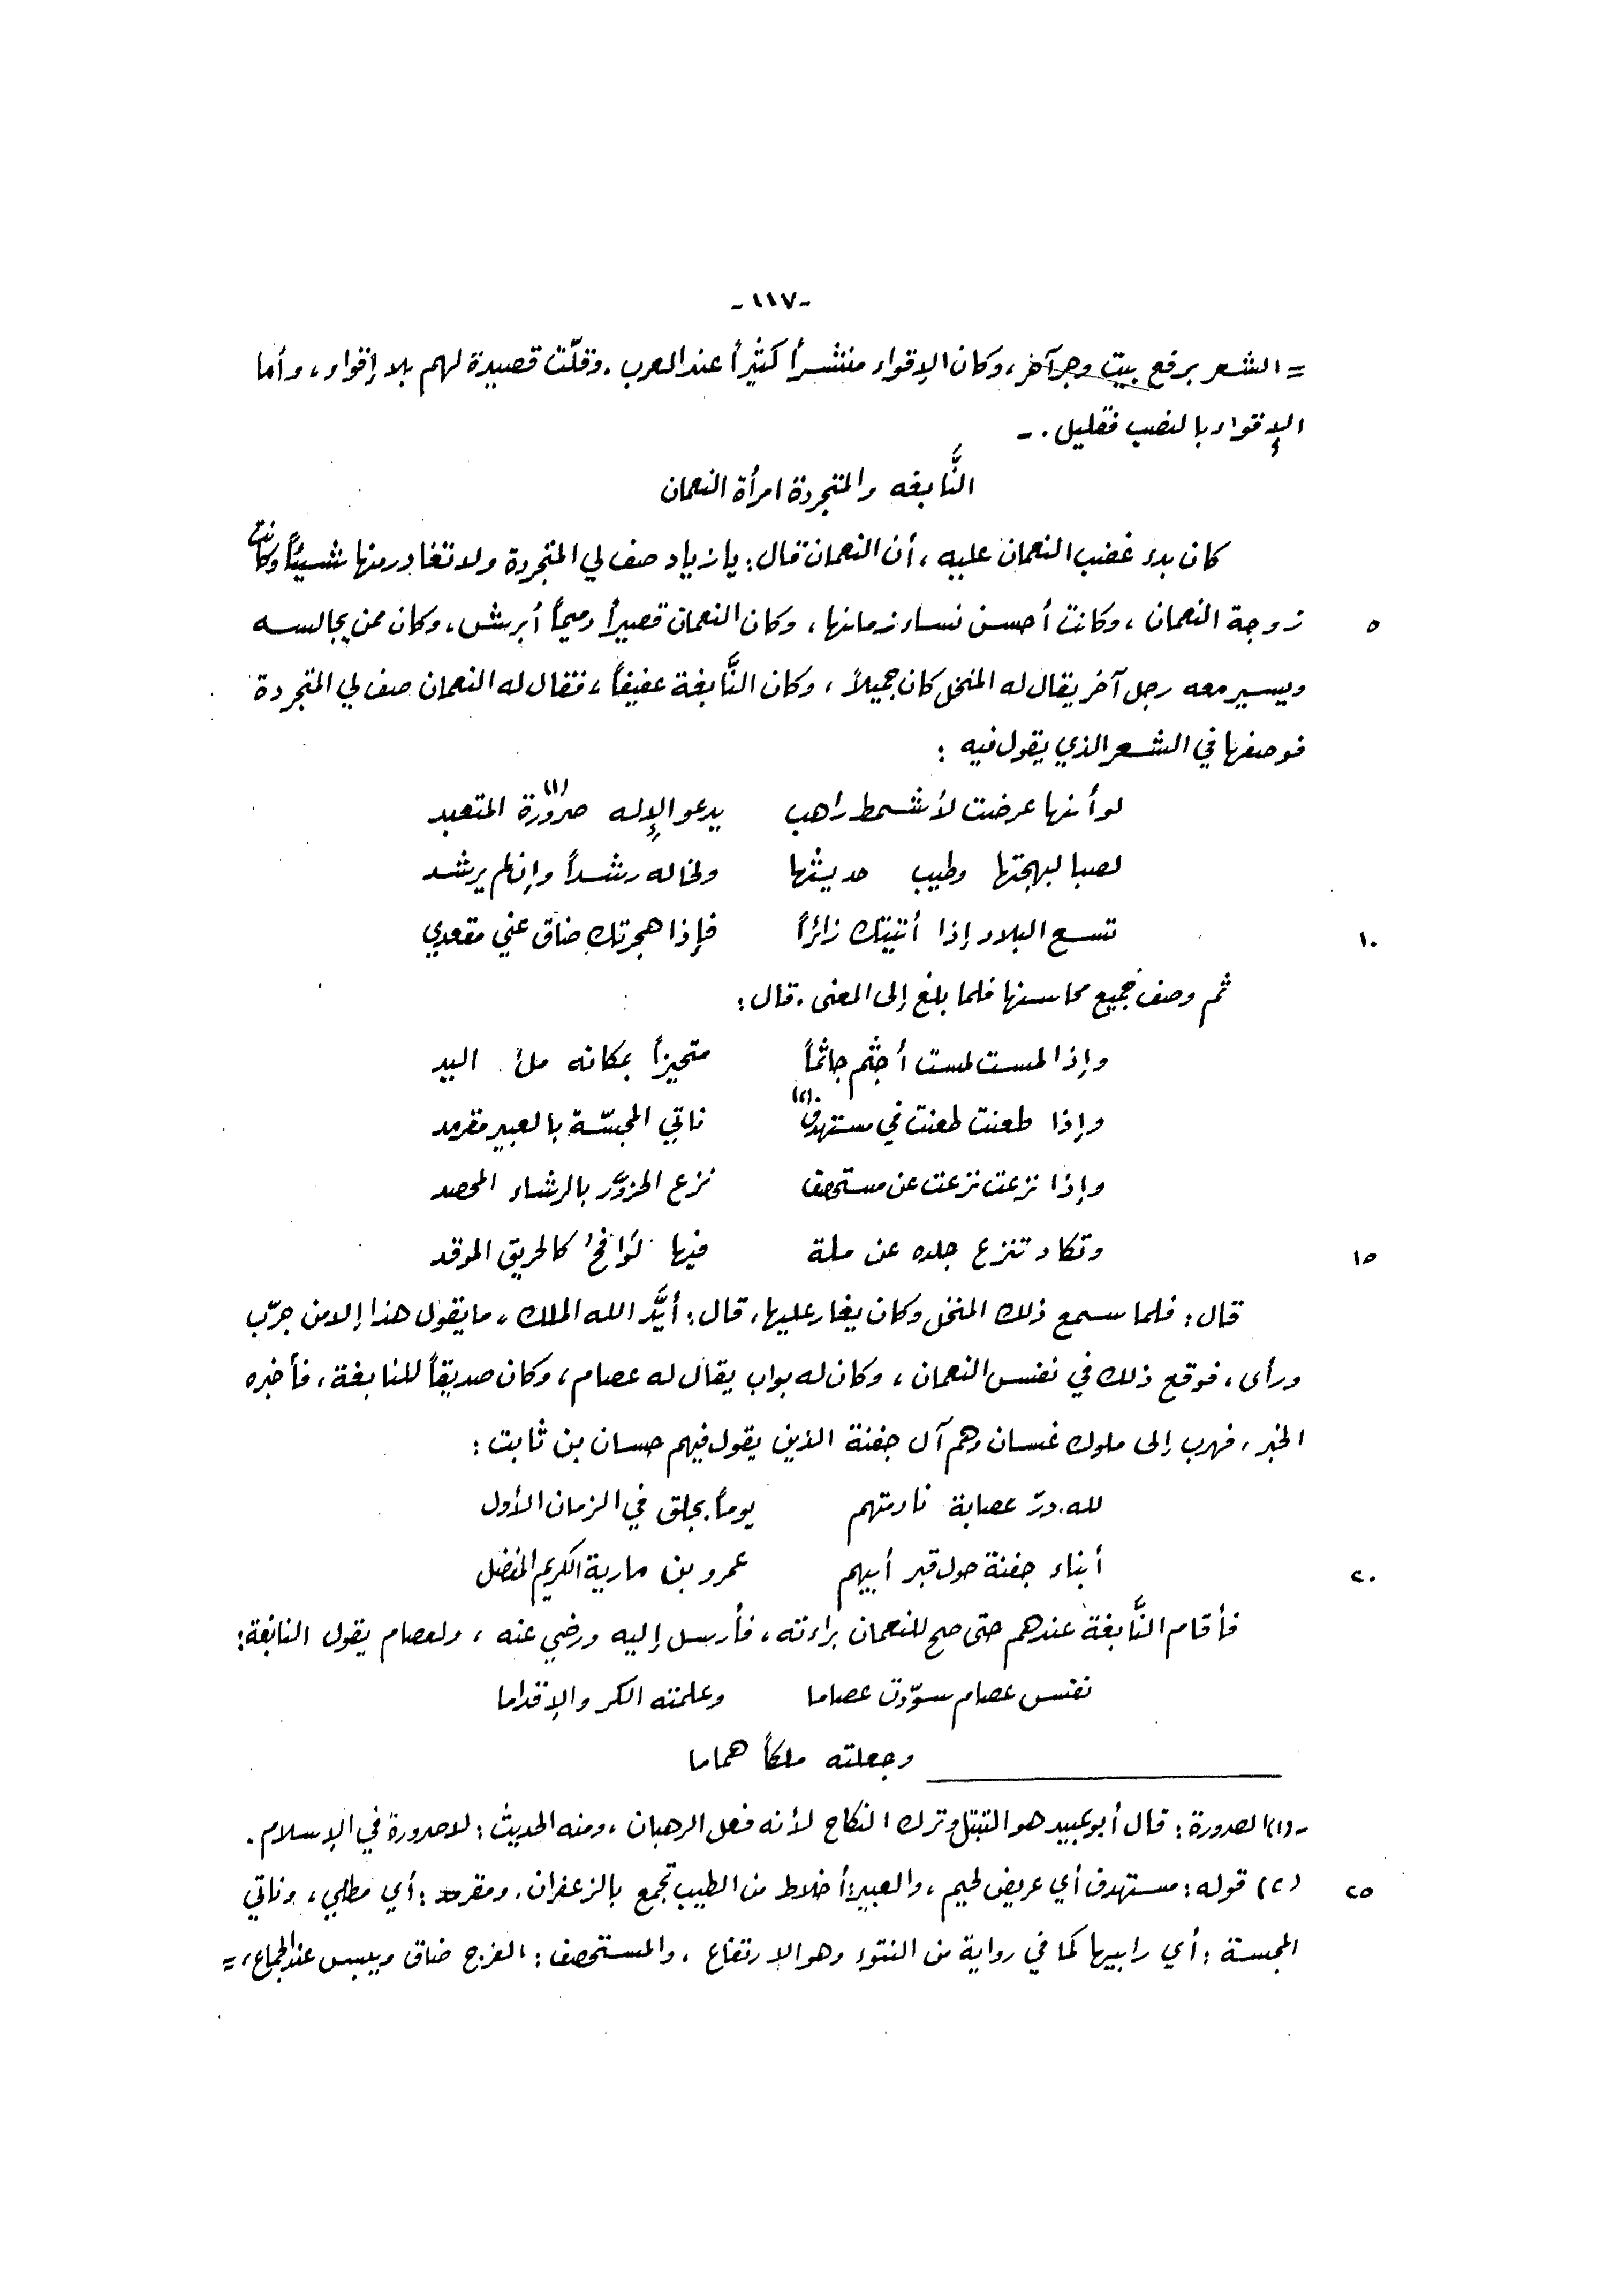 -١١٧-
= الشعر برفع بيت وجر آخر، وكان الإقواء منتشراً كثيراً عند العرب. وقلّت قصيدة لهم بلا إقواء، وأما
الإقواء بالنصب فقليل. -
النَّابغه والمتجردة امرأة النعمان
كان بدء غضب النعمان عليه، أن النعمان قال: يا زياد صف لي المتجردة ولا تغادر منها شيئاً وكانت
٥ زوجة النعمان، وكانت أحسن نساء زمانها، وكان النعمان قصيراً دميماً أبرش، وكان ممن يجالسه
ويسير معه رجل آخر يقال له المنخل كان جميلاً، وكان النَّابغة عفيفاً، فقال له النعمان صف لي المتجردة
فوصفها في الشعر الذي يقول فيه:
لو أنها عرضت لأشمط راهب يدعو الإله صرورة (١) المتعبد
لصبا لبهجتها وطيب حديثها ولخاله رشداً وإن لم يرشد
١٠ تسع البلاد إذا أتيتك زائراً فإذا هجرتك ضاق عني مقعدي
ثم وصف جميع محاسنها فلما بلغ إلى المعنى. قال:
وإذا لمست لمست أجثم جاثماً متحيزاً بمكانه ملأ اليد
وإذا طعنت طعنت في مستهدف (٢) ناتي المجسّة بالعبير مقرمد
وإذا نزعت نزعت عن مستحصف نزع الحزوَّر بالرشاء المحصد
١٥ وتكاد تنزع جلده عن ملة فيها لَوَافحُ كالحريق الموقد
قال: فلما سمع ذلك المنخل وكان يغار عليها، قال: أيَّد الله الملك، ما يقول هذا إلا من جرّب
ورأى، فوقع ذلك في نفس النعمان، وكان له بواب يقال له عصام، وكان صديقاً للنابغة، فأخبره
الخبر، فهرب إلى ملوك غسان وهم آل جفنة الذين يقول فيهم حسان بن ثابت:
لله درّ عصابة نادمتهم يوماً بجلق في الزمان الأول
٢٠ أبناء جفنة حول قبر أبيهم عمرو بن مارية الكريم المفضل
فأقام النَّابغة عندهم حتى صح للنعمان براءته، فأرسل إليه ورضي عنه، ولعصام يقول النابغة:
نفس عصام سوّدت عصاما وعلمته الكر والإقداما
وجعلته ملكاً هماما
-(١) الصرورة: قال أبو عبيد هو التبتل وترك النكاح لأنه فعل الرهبان، ومنه الحديث: لا صرورة في الإسلام.
٢٥ (٢) قوله: مستهدف أي عريض لحيم، والعبير: أخلاط من الطيب تجمع بالزعفران. ومقرمد: أي مطلي، وناتي
المجسة: أي رابيها كما في رواية من النتوء وهو الارتفاع، والمستحصف: الفرج ضاق ويبس عند الجماع، =